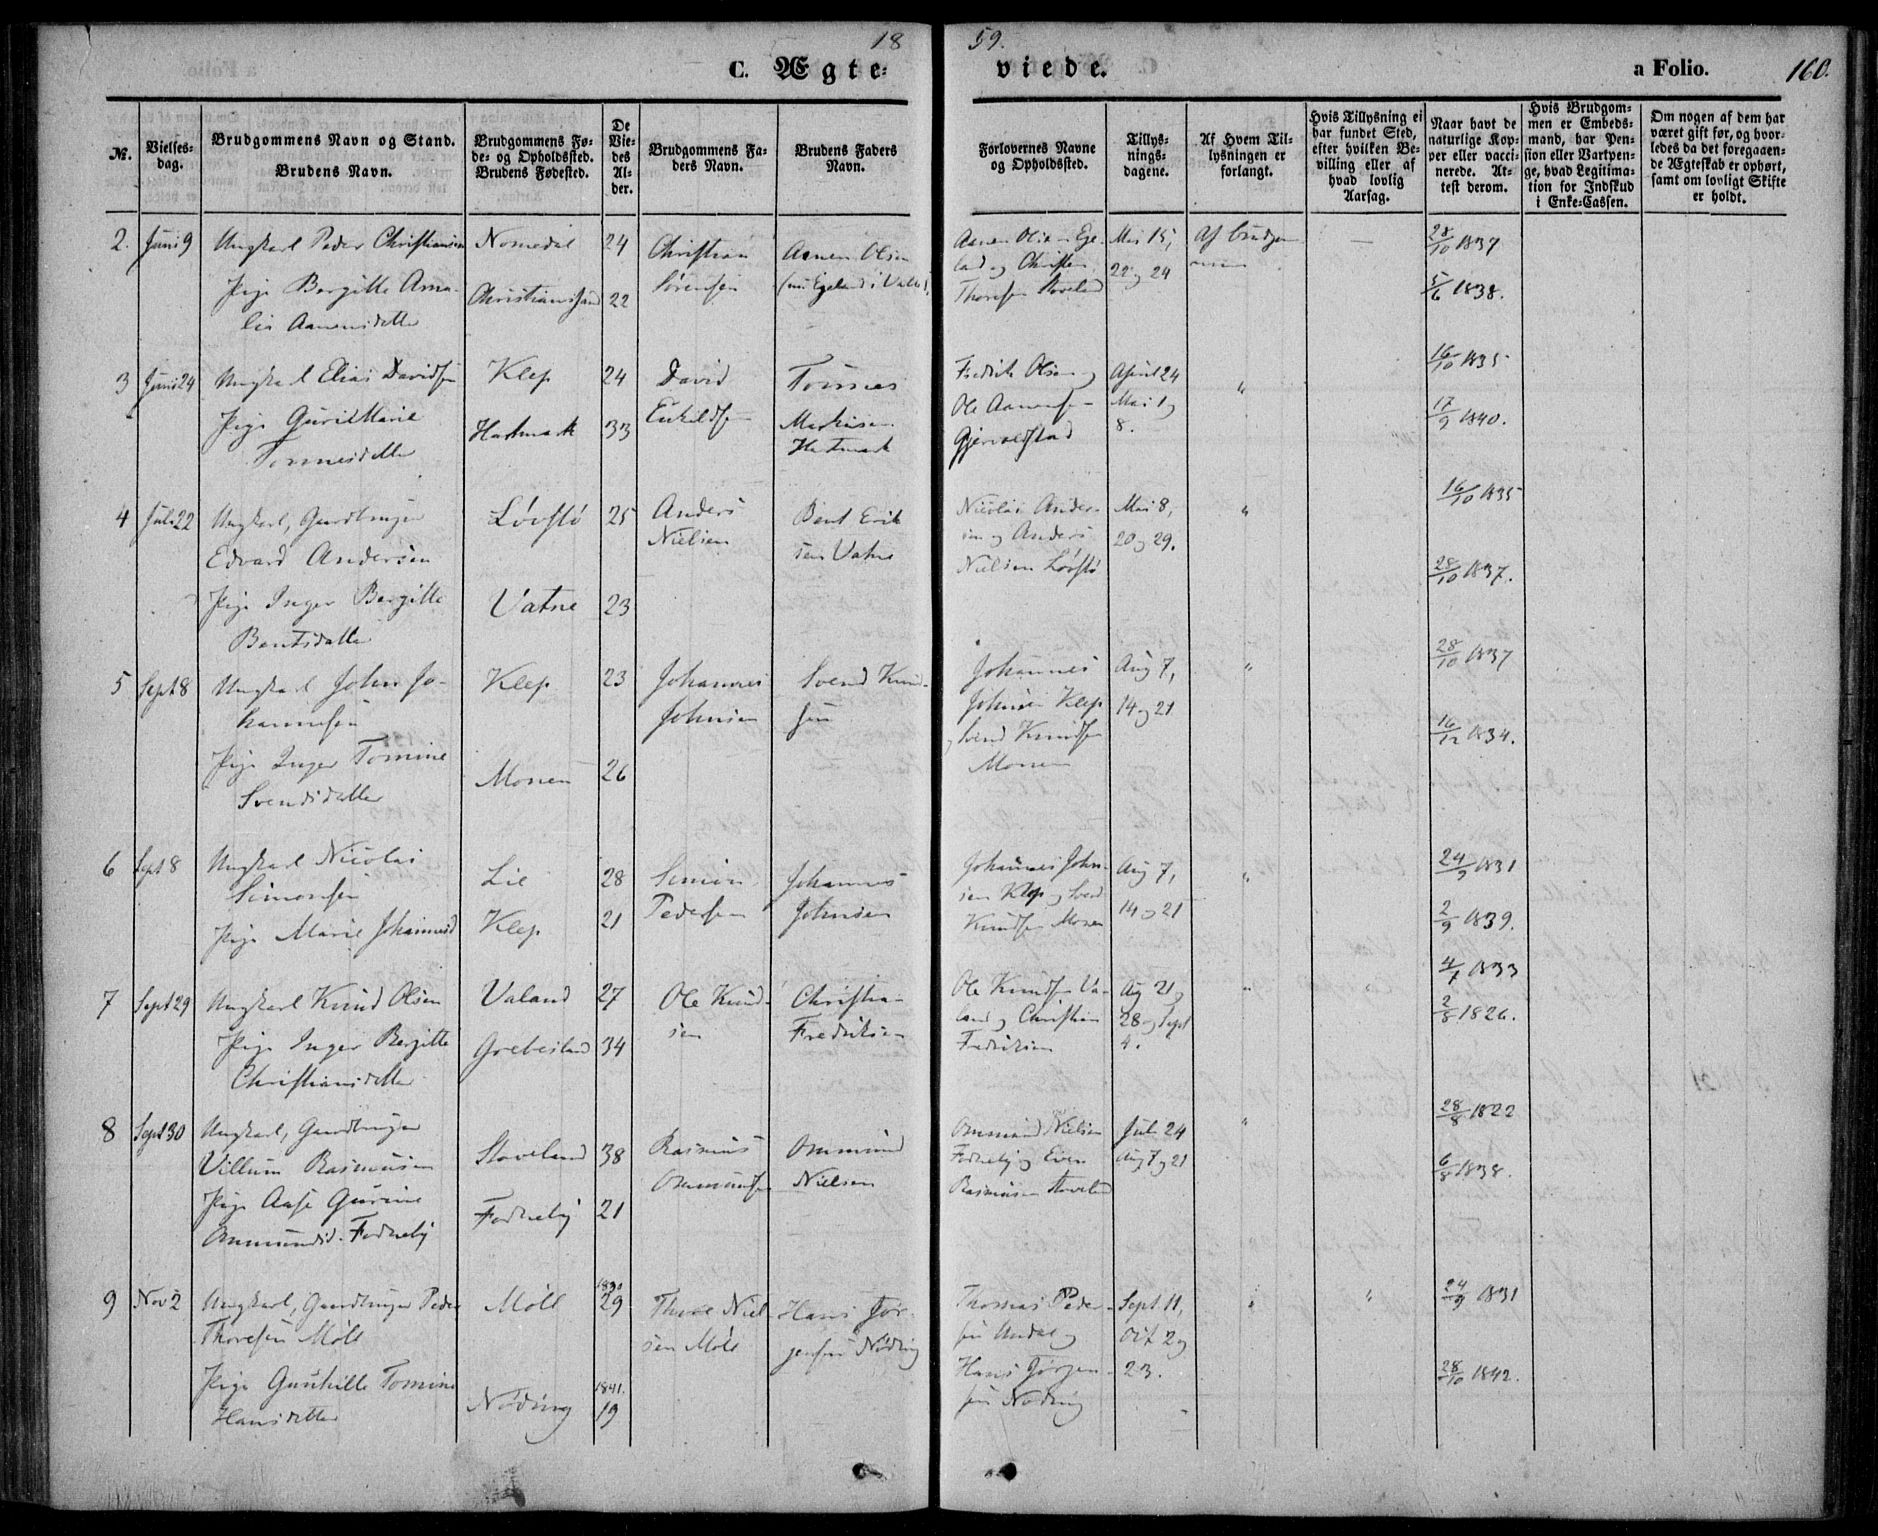 18 59.
C. Ægte-
viede.
a Folio.
160.
№.
Vielses-
dag.
Brudgommens Navn og Stand.
Brudens Navn.
Brudgommens Fø-
de- og Opholdssted.
Brudens Fødested.
De
Vie-
des
Al-
der.
Brudgommens Fa-
ders Navn.
Brudens Faders
Navn.
Forlovernes Navne
og Opholdssted.
Tillys-
nings-
dagene.
Af Hvem Til-
lysningen er
forlangt.
Hvis Tillysning ei
har fundet Sted,
efter hvilken Be-
villing eller af
hvad lovlig
Aarsag.
Naar havt de
naturlige Kop-
per eller vacci-
nerede. At-
test derom.
Hvis Brudgom-
men er Embeds-
mand, har Pen-
sion eller Vartpen-
ge, hvad Legitima-
tion for Indskud
i Enke-Cassen.
Om nogen af dem har
været gift før, og hvor-
ledes da det foregaaen-
de Ægteskab er ophørt,
samt om lovligt Skifte
er holdt.
2. Juni 9
Ungkarl Peder Christiansen
Pige Bergitte Ama-
lia Aanensdatter
Nomedal
Christianssand
24
22
Christian
Sørensen
Aanen Olsen
(nu Egeland i Valle)
Aanen Olsen Ege-
land og Christen
Thoresen Stoveland
Mai 15,
22 og 24
Af Brudgom-
men
—
28/10 1837
5/6 1838.
3 Juni 24
Ungkarl Elias Davidsen
Pige Guril Marie
Tønnesdatter
Klep
Hartmark
24
33
David
Eukildsen
Tønnes
Markusen
Hartmark
Fredrik Olsen og
Ole Aanensen
Gjervoldstad
April 24
Mai 1 og
8.
"
16/10 1835
17/9 1840.
4 Juli 22
Ungkarl, Gaardbruger
Edvard Andersen
Pige Inger Bergitte
Bentsdatter
Løvstø
Vatne
25
23
Anders
Nielsen
Bent Erik
sen Vatne
Nicolai Ander-
sen og Anders
Nielsen Løvstø
Mai 8,
20 og 29.
"
16/10 1835
28/10 1837.
5 Sept 8
Ungkarl John Jo-
hannesen
Pige Inger Tomine
Svendsdatter
Klep
Monen
23
26
Johannes
Johnsen
Svend Knud-
sen
Johannes
Johnsen Klep
og Svend Knudsen
Monen
Aug 7,
14 og 21
"
28/10 1837
16/12 1834.
6 Sept 8
Ungkarl Nicolai
Simonsen
Pige Marie Johannesd
Lie
Klep
28
21
Simon
Pedersen
Johannes
Johnsen
Johannes John-
sen Klep og Svend
Knudsen Monen
Aug 7,
14 og 21
"
24/9 1831
2/9 1839.
7 Sept 29
Ungkarl Knud Olsen
Pige Inger Bergitte
Christiansdatter
Valand
Grebesland
27
34
Ole Knud-
sen
Christian
Fredriksen
Ole Knudsen Va-
land og Christian
Fredriksen
Aug 21,
28 og Sept
4.
"
4/7 1833
2/8 1826.
8 Sept 30
Ungkarl, Gaardbruger
Villum Rasmusen
Pige Aase Gurine
Ommundsd. Fodneby
Stoveland
Fodneby
38
21
Rasmus
Ommundsen
Ommund
Nielsen
Ommund Nielsen
Fodneby og Even
Rasmusen Stoveland
Juli 24
Aug 7 og 21
"
28/8 1822
6/8 1838.
9 Nov 2
Ungkarl, Gaardbruger Peder
Thoresen Møll
Pige Gunhille Tomine
Hansdatter
Møll
Nøding
1830
29
1841.
19
Thore Niel
sen Møll
Hans Jør-
gensen Nøding
Thomas Peder-
sen Undal og
Hans Jørgen-
sen Nøding
Sept. 11,
Oct 2 og
23.
"
"
24/9 1831
28/10 1842.